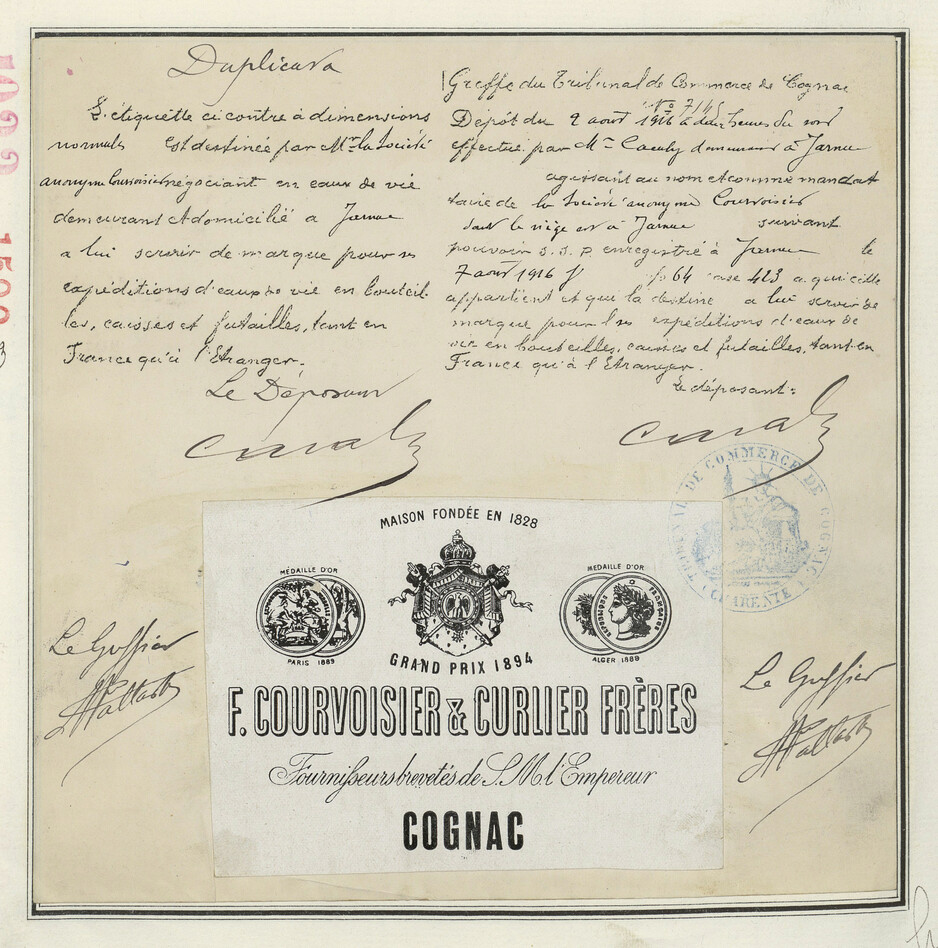 Duplicata
L'étiquette ci contre à dimensions
normales est destinée par Mr la Société
anonyme Courvoisier négociant en eaux de vie
demeurant et domicilié à Jarnac
à lui servir de marque pour ses
expéditions d'eaux de vie en bouteil
les, caisses et futailles, tant en
France qu'à l'Etranger.
Le Déposant
Greffe du Tribunal de Commerce de Cognac
No 7145
Dépôt du 9 aout 1916 à deux heures du soir
effectué par Mr demeurant à Jarnac
agissant au nom et comme mandat
taire de la Société anonyme Courvoisier
dont le siège est à Jarnac suivant
pouvoir S.S.P. enregistré à Jarnac le
7 aout 1916 fo 64 case 423 a qui elle
appartient et que la destine a lui servir de
marque pour ses expéditions d'eaux de
vie en bouteilles, caisses et futailles, tant en
France qu'à l'Etranger.
Le déposant:
TRIBUNAL DE COMMERCE DE COGNAC
(CHARENTE)
Le Greffier
Le Greffier
MAISON FONDÉE EN 1828
MÉDAILLE D'OR
PARIS 1889
GRAND PRIX 1894
MEDAILLE D'OR
EXPOSITION FRANÇAISE
ALGER 1888
F. COURVOISIER & CURLIER FRÈRES
Fournisseurs brevetés de S.M. l'Empereur
COGNAC